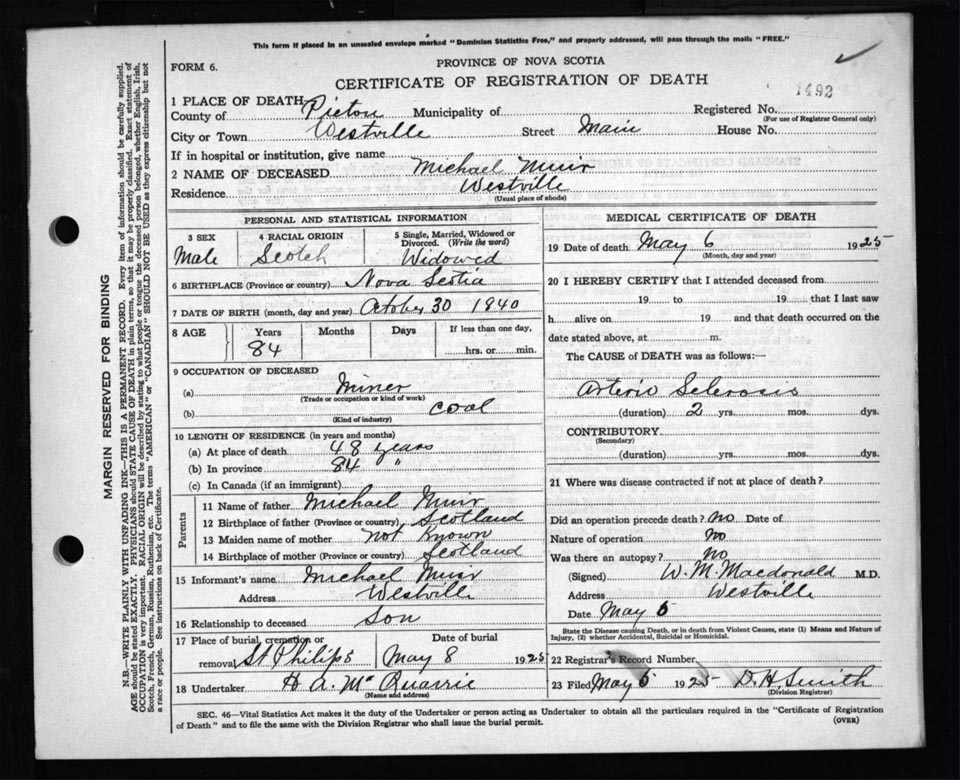 This form if placed in an unsealed envelope marked "Dominion Statistics Free," and properly addressed, will pass through the mails "FREE."
FORM 6.
PROVINCE OF NOVA SCOTIA
CERTIFICATE OF REGISTRATION OF DEATH
1492
1 PLACE OF DEATH
County of Pictou Municipality of Registered No.
(For use of Registrar General only)
City or Town Westville Street Main House No.
If in hospital or institution, give name
2 NAME OF DECEASED Michael Muir
Residence Westville
(Usual place of abode)
PERSONAL AND STATISTICAL INFORMATION
3 SEX 4 RACIAL ORIGIN 5 Single, Married, Widowed or Divorced. (Write the word)
Male Scotch Widowed
6 BIRTHPLACE (Province or country) Nova Scotia
7 DATE OF BIRTH (month, day and year) October 30 1840
8 AGE Years Months Days If less than one day,
84 hrs. or min.
9 OCCUPATION OF DECEASED
(a) Miner
(Trade or occupation or kind of work)
(b) Coal
(Kind of industry)
10 LENGTH OF RESIDENCE (in years and months)
(a) At place of death 48 years
(b) In province 84 "
(c) In Canada (if an immigrant)
Parents
11 Name of father Michael Muir
12 Birthplace of father (Province or country) Scotland
13 Maiden name of mother not known
14 Birthplace of mother (Province or country) Scotland
15 Informant's name Michael Muir
Address Westville
16 Relationship to deceased Son
17 Place of burial, cremation or removal St Philips Date of burial May 8 1925
18 Undertaker H A McQuarrie
(Name and address)
MEDICAL CERTIFICATE OF DEATH
19 Date of death May 6 1925
(Month, day and year)
20 I HEREBY CERTIFY that I attended deceased from
19 to 19 that I last saw
h alive on 19 and that death occurred on
date stated above, at m.
The CAUSE of DEATH was as follows:—
Arterio Sclerosis
(duration) 2 yrs. mos. dys.
CONTRIBUTORY
(Secondary)
(duration) yrs. mos. dys.
21 Where was disease contracted if not at place of death?
Did an operation precede death? No Date of
Nature of operation No
Was there an autopsy? No
(Signed) W. M. Macdonald M.D.
Address Westville
Date May 6
State the Disease causing Death, or in death from Violent Causes, state (1) Means and Nature of
Injury, (2) whether Accidental, Suicidal or Homicidal.
22 Registrar's Record Number
23 Filed May 6 1925 D. H Smith
(Division Registrar)
SEC. 46—Vital Statistics Act makes it the duty of the Undertaker or person acting as Undertaker to obtain all the particulars required in the "Certificate of Registration
of Death" and to file the same with the Division Registrar who shall issue the burial permit.
(OVER)
MARGIN RESERVED FOR BINDING
N.B.—WRITE PLAINLY WITH UNFADING INK—THIS IS A PERMANENT RECORD. Every item of information should be carefully supplied.
AGE should be stated EXACTLY. PHYSICIANS should STATE CAUSE OF DEATH in plain terms, so that it may be properly classified. Exact statement of
OCCUPATION is very important. RACIAL ORIGIN will be described by stating to what people or tongue the deceased person belonged, whether English, Irish,
Scotch, French, German, Russian, Ruthenian, etc. The terms "AMERICAN" or "CANADIAN" SHOULD NOT BE USED as they express citizenship but not
a race or people. See instructions on back of Certificate.